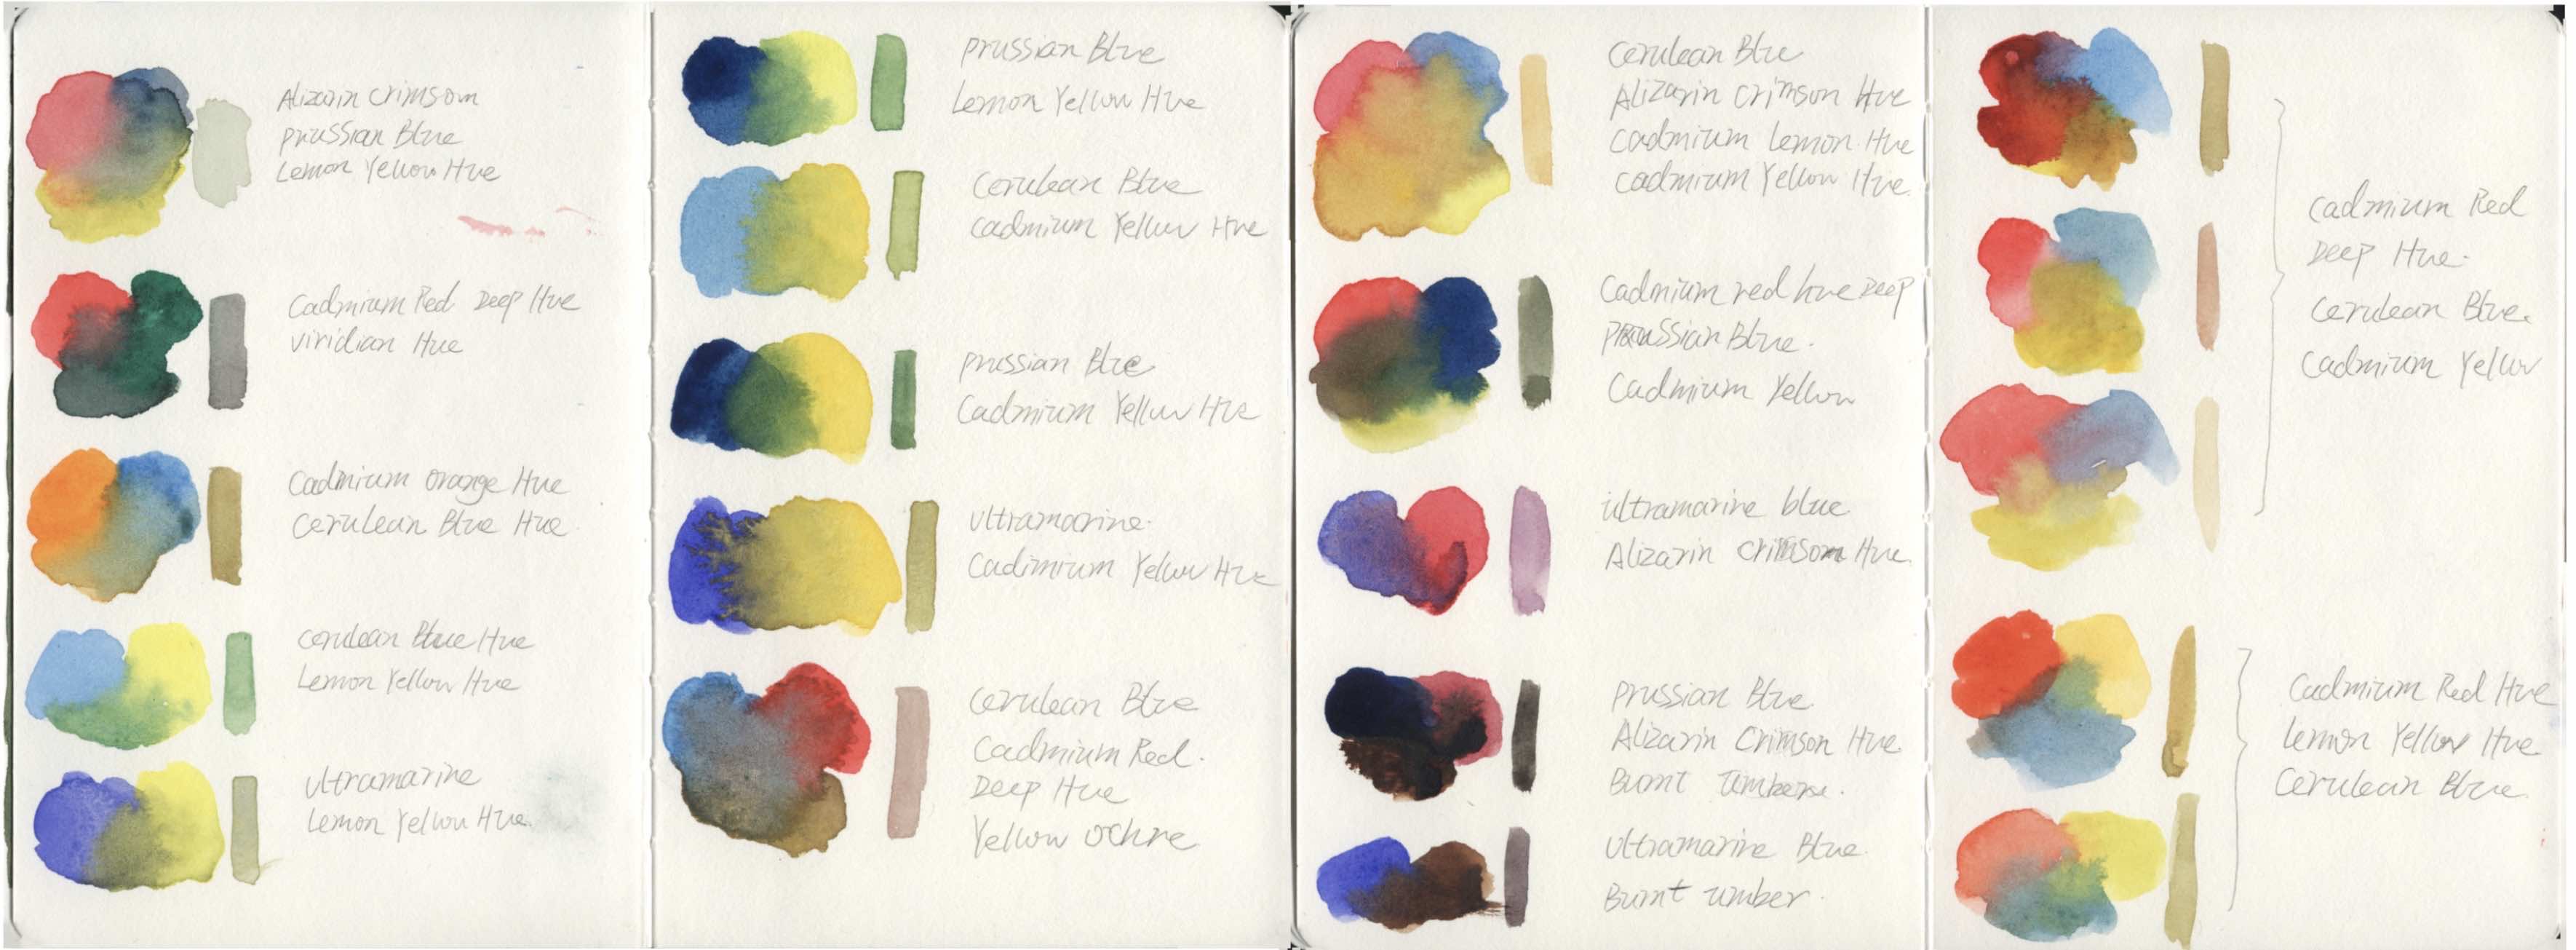 Alizarin Crimson
Prussian Blue
Lemon Yellow Hue
Cadmium Red Deep Hue
Viridian Hue
Cadmium Orange Hue
Cerulean Blue Hue
Cerulean Blue Hue
Lemon Yellow Hue
Ultramarine
Lemon Yellow Hue
Prussian Blue
Lemon Yellow Hue
Cerulean Blue
Cadmium Yellow Hue
Prussian Blue
Cadmium Yellow Hue
Ultramarine
Cadimium Yellow Hue
Cerulean Blue
Cadmium Red.
Deep Hue
Yellow Ochre
Cerulean Blue
Alizarin Crimson Hue
Cadmium Lemon Hue
Cadmium Yellow Hue.
Cadmium red hue Deep
Prussian Blue.
Cadmium Yellow
Ultramarine blue
Alizarin Crimson Hue
Prussian Blue
Alizarin Crimson Hue
Burnt
Ultramarine Blue
Burnt umber.
Cadmium Red
Deep Hue.
Cerulean Blue.
Cadmium Yellow
Cadmium Red Hue
Lemon Yellow Hue
Cerulean Blue.